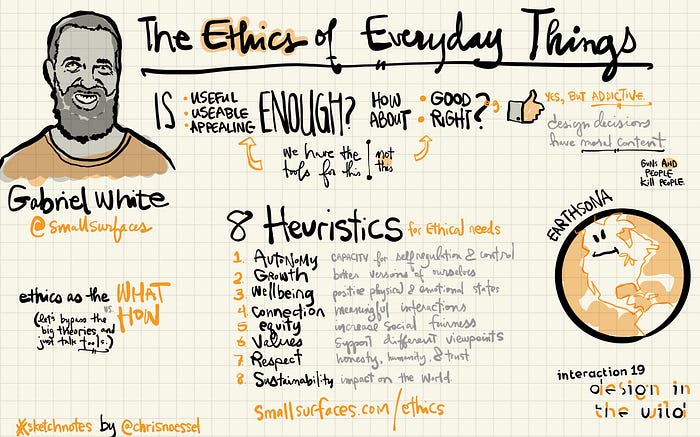 The Ethics of Everyday Things
IS • USEFUL
• USEABLE
• APPEALING
ENOUGH?
HOW ABOUT
• GOOD
• RIGHT?
e.g.
YES, BUT ADDICTIVE.
design decisions
have moral content
GUNS AND
PEOPLE
KILL PEOPLE.
We have the
tools for this
not
this
Gabriel White
@smallsurfaces
8 Heuristics for ethical needs
1. Autonomy CAPACITY for self regulation & control
2. Growth better versions of ourselves
3. Wellbeing positive physical & emotional states
4. Connection meaningful interactions
5. equity increase social fairness
6. Values support different viewpoints
7. Respect honesty, humanity, & trust
8. Sustainability impact on the world.
smallsurfaces.com/ethics
ethics as the WHAT
vs. HOW
(let's bypass the
big theories, and
just talk tools.)
EARTHSONA
interaction 19
design in
the wild
#sketchnotes by @chrisnoessel